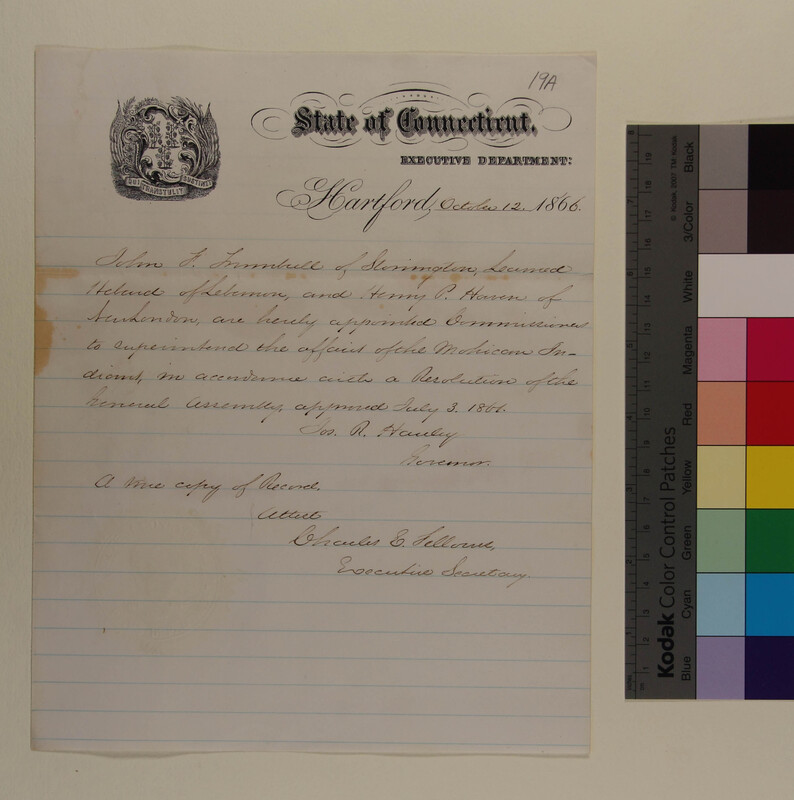 19A
State of Connecticut.
EXECUTIVE DEPARTMENT:
Hartford, October 12. 1866.
QUI TRANSTULIT SUSTINET
John F. Trumbull of Stonington, Learned
Hebard of Lebanon, and Henry P. Haven of
New London, are hereby appointed Commissioners
to superintend the affairs of the Mohican In-
dians, in accordance with a Resolution of the
General Assembly, approved July 3. 1866.
Jos. R. Hawley
Governor.
A true copy of Record.
Attest
Charles E. Fellowes,
Executive Secretary.
Kodak Color Control Patches
© Kodak, 2007 TM: Kodak
Blue Cyan Green Yellow Red Magenta White 3/Color Black